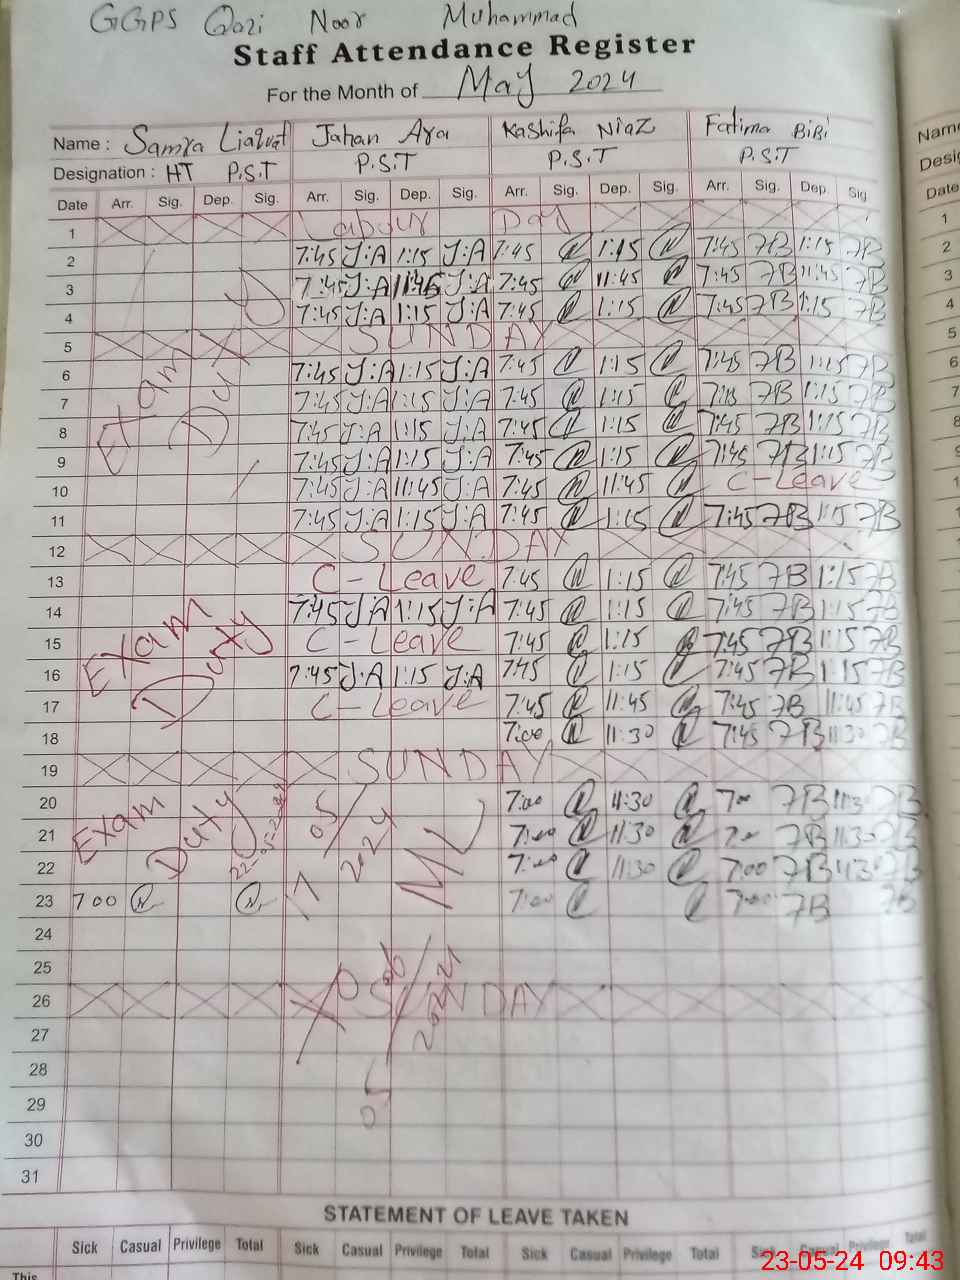 GGPS Qazi Noor Muhammad
Staff Attendance Register
For the Month of May 2024
Name : Samra Liaqat Jahan Ara Kashifa Niaz Fatima BiBi
Designation : HT P.S.T P.S.T P.S.T P.S.T
Date Arr. Sig. Dep. Sig. Arr. Sig. Dep. Sig. Arr. Sig. Dep. Sig. Arr. Sig. Dep. Sig
1 Labour Day
2 7:45 J:A 1:15 J:A 7:45 1:15 7:45 7B 1:15 7B
3 7:45 J:A 11:45 J:A 7:45 11:45 7:45 7B 11:45 7B
4 7:45 J:A 1:15 J:A 7:45 1:15 7:45 7B 1:15 7B
5 SUNDAY
6 7:45 J:A 1:15 J:A 7:45 1:15 7:45 7B 1:15 7B
7 7:45 J:A 1:15 J:A 7:45 1:15 7B 1:15 7B
Exam Duty
8 7:45 J:A 1:15 J:A 7:45 1:15 7:45 7B 1:15 7B
9 7:45 J:A 1:15 J:A 7:45 1:15 7:45 7B 1:15 7B
10 7:45 J:A 11:45 J:A 7:45 11:45 C-Leave
11 7:45 J:A 1:15 J:A 7:45 1:15 7:45 7B 1:15 7B
12 SUNDAY
13 C-Leave 7:45 1:15 7:45 7B 1:15 7B
14 7:45 J:A 1:15 J:A 7:45 1:15 7:45 7B 1:15 7B
15 C-Leave 7:45 1:15 7:45 7B 1:15 7B
Exam Duty
16 7:45 J:A 1:15 J:A 7:45 1:15 7:45 7B 1:15 7B
17 C-Leave 7:45 11:45 7:45 7B 11:45 7B
18 7:00 11:30 7:45 7B 11:30 7B
19 SUNDAY
20 7:00 11:30 7:00 7B 11:30 7B
21 Exam Duty 17/05/2024 ML 7:00 11:30 7:00 7B 11:30 7B
22 22-05-2024 7:00 11:30 7:00 7B 11:30 7B
23 7 00 7:00 7:00 7B 7B
24
25
26 SUNDAY
27
28
29
30
31
STATEMENT OF LEAVE TAKEN
Sick Casual Privilege Total Sick Casual Privilege Total Sick Casual Privilege Total Sick Casual Privilege Total
This
23-05-24 09:43
Name
Desig
Date
1
2
3
4
5
6
7
8